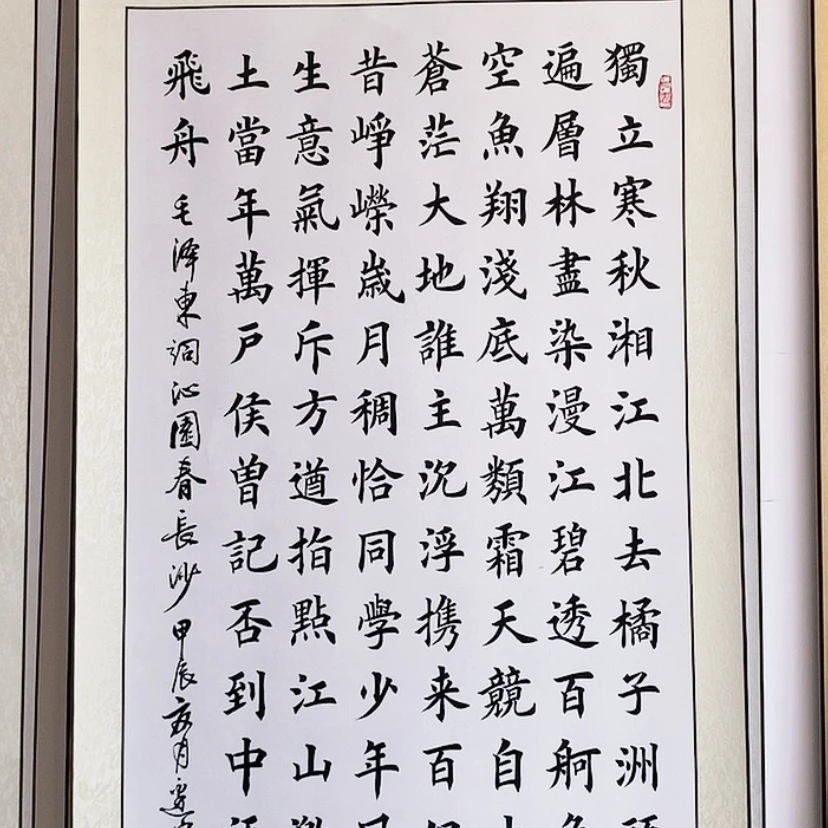 獨立寒秋湘江北去橘子洲
遍層林盡染漫江碧透百舸
空魚翔淺底萬類霜天競自
蒼茫大地誰主沉浮携来百
昔崢嶸歲月稠恰同學少年
生意氣揮斥方遒指點江山
土當年萬戶侯曾記否到中
飛舟 毛泽東詞沁園春長沙 甲辰